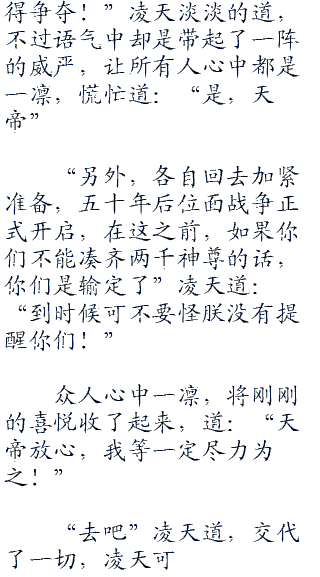 得争夺！”凌天淡淡的道，
不过语气中却是带起了一阵
的威严，让所有人心中都是
一凛，慌忙道：“是，天
帝”
“另外，各自回去加紧
准备，五十年后位面战争正
式开启，在这之前，如果你
们不能凑齐两千神尊的话，
你们是输定了”凌天道：
“到时候可不要怪朕没有提
醒你们！”
众人心中一凛，将刚刚
的喜悦收了起来，道：“天
帝放心，我等一定尽力为
之！”
“去吧”凌天道，交代
了一切，凌天可